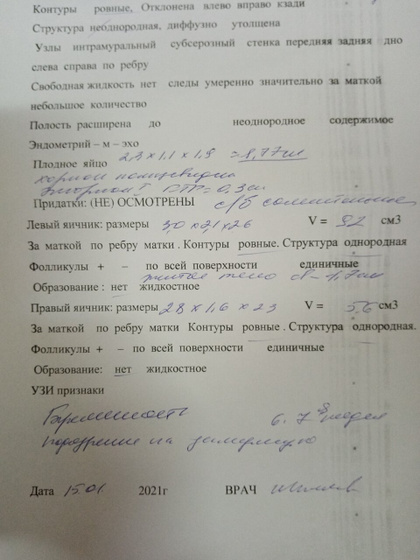 Контуры ровные, Отклонена влево вправо кзади
Структура неоднородная, диффузно утолщена
Узлы интрамуральный субсерозный стенка передняя задняя дно
слева справа по ребру
Свободная жидкость нет следы умеренно значительно за маткой
небольшое количество
Полость расширена до неоднородное содержимое
Эндометрий – м – эхо
Плодное яйцо 23 x 1,1 x 1,9 =
хорион
= 0,3 см
Придатки: (НЕ) ОСМОТРЕНЫ с/б
Левый яичник: размеры 30 x 2,1 x 26 V = 9,2 см3
За маткой по ребру матки . Контуры ровные. Структура однородная
Фолликулы + – по всей поверхности единичные
желтое тело d – 1,7 см
Образование : нет жидкостное
Правый яичник: размеры 28 x 1,6 x 23 V = 5,6 см3
За маткой по ребру матки Контуры ровные . Структура однородная.
Фолликулы + – по всей поверхности единичные
Образование: нет жидкостное
УЗИ признаки
Беременность 6. 7 недел
подозрение на замершую
Дата 15.01 2021г ВРАЧ